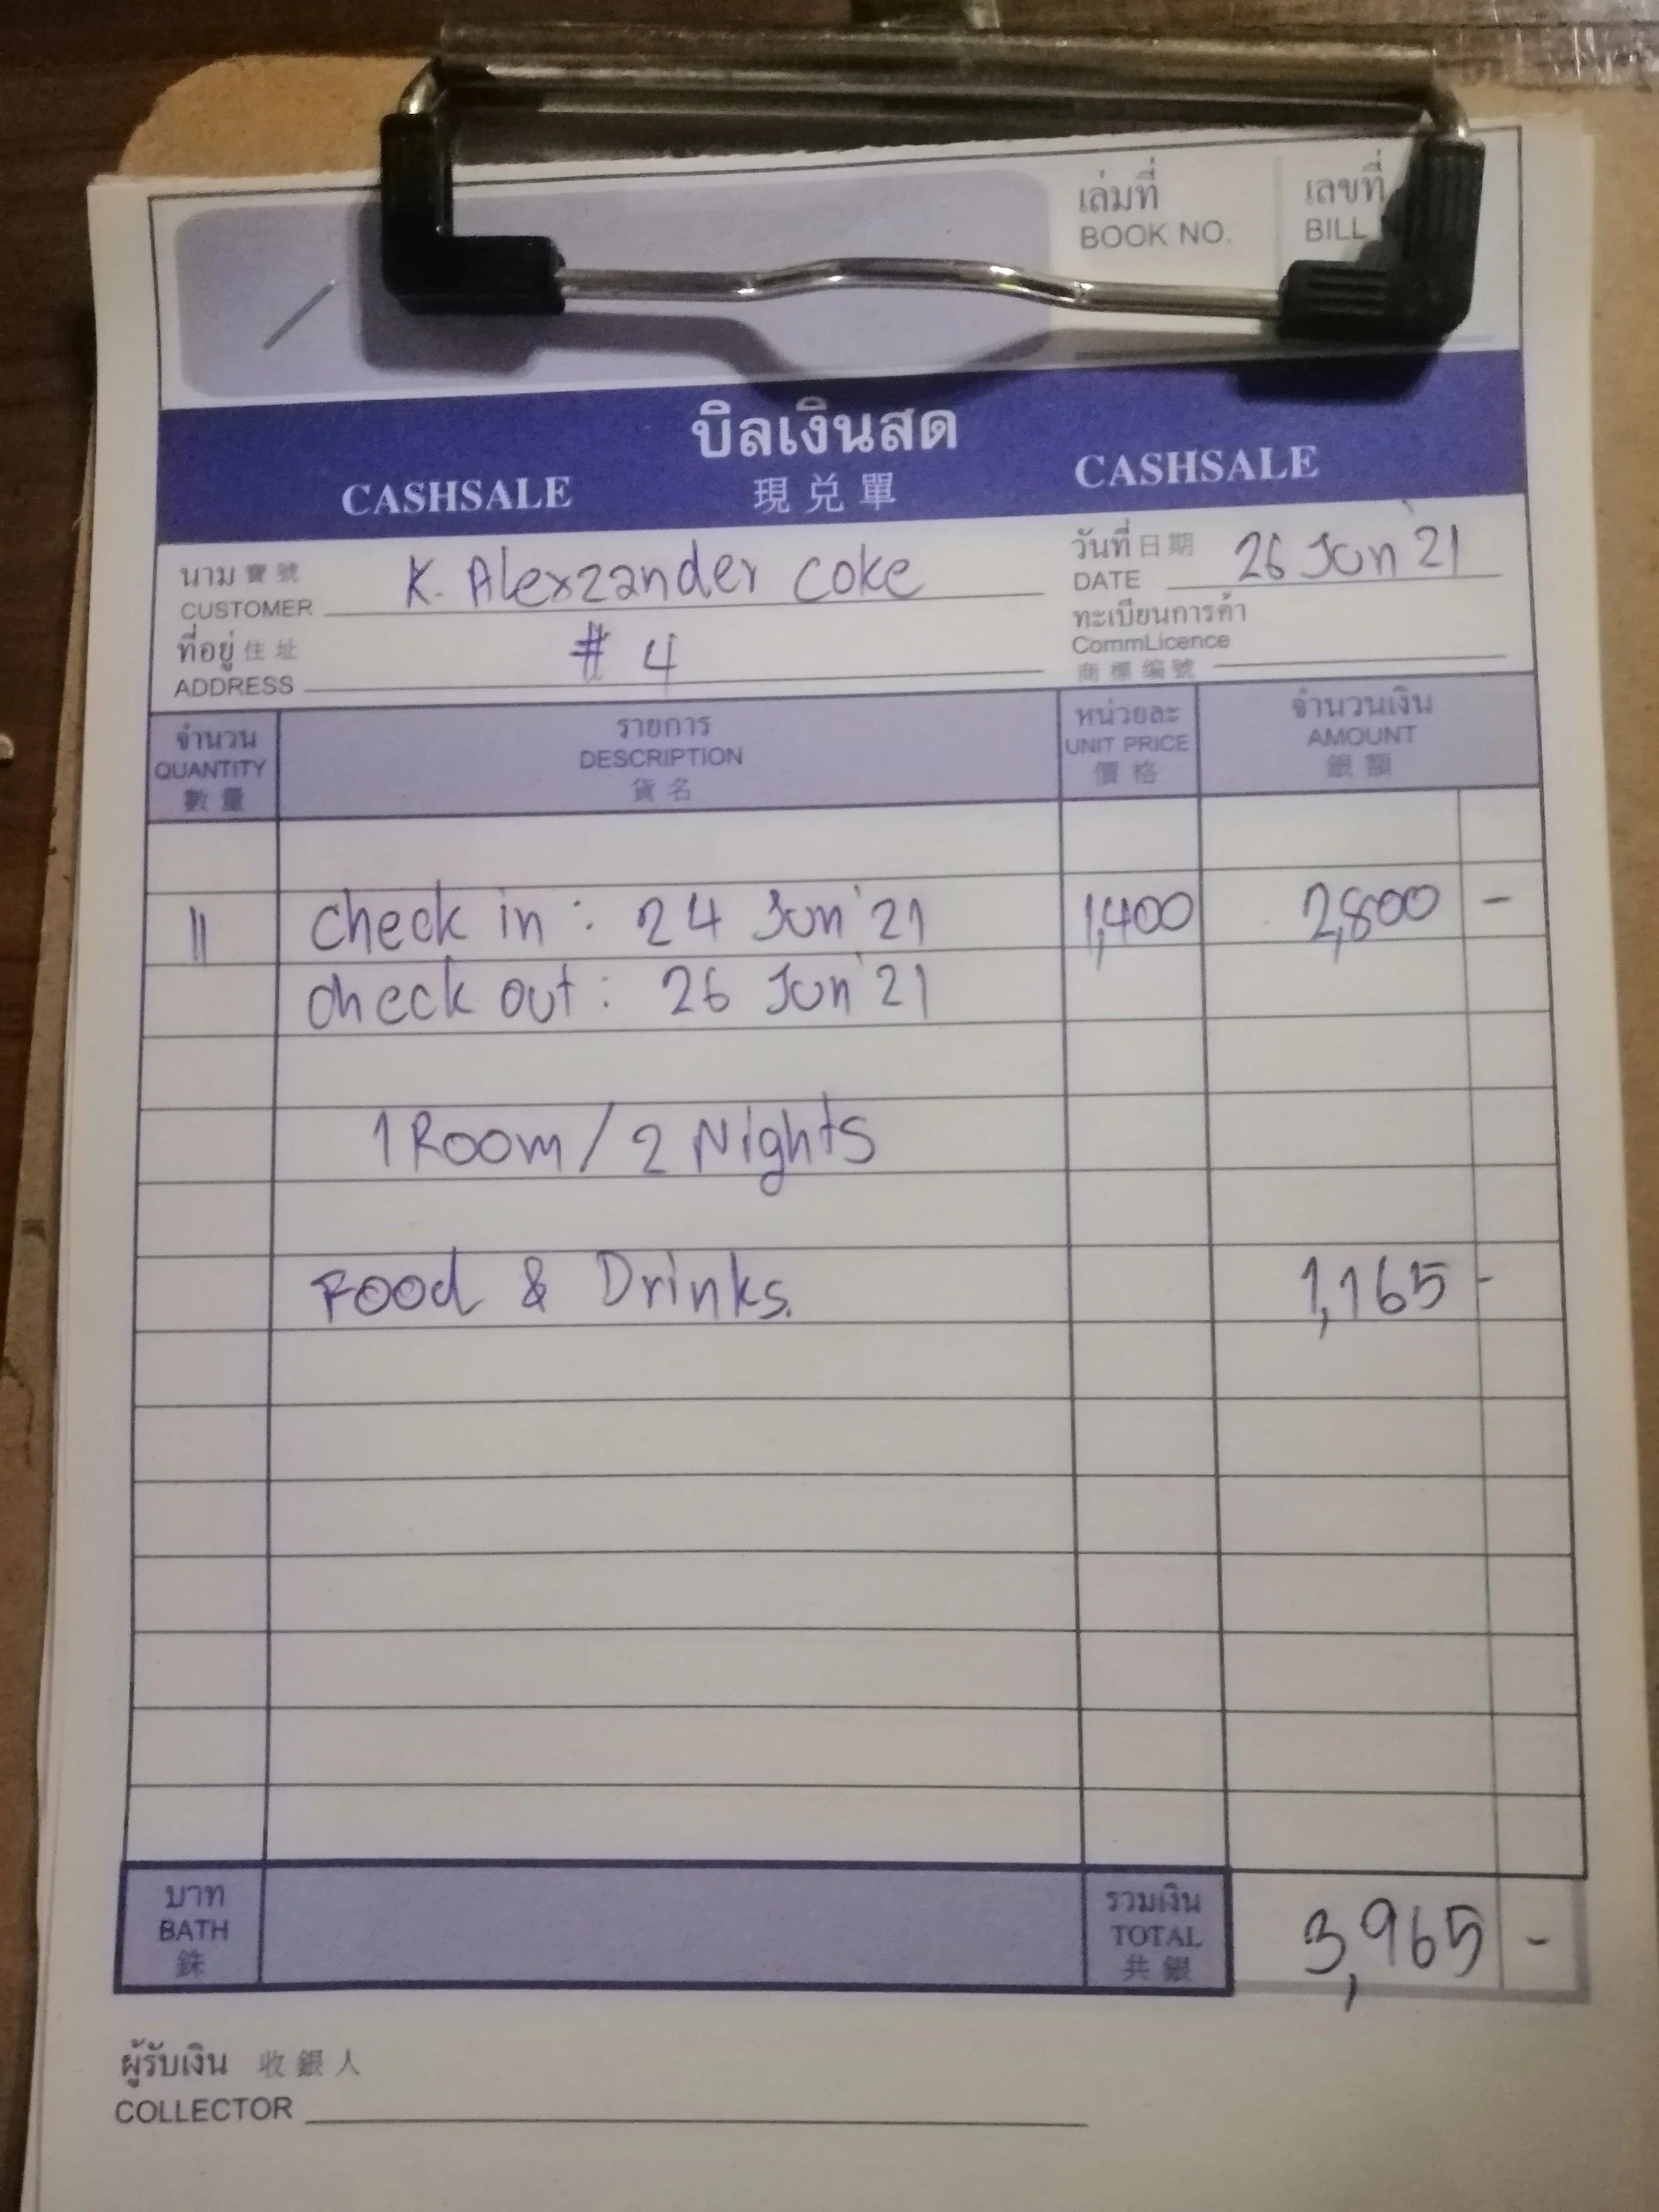 เล่มที่ เลขที่
BOOK NO. BILL
บิลเงินสด
CASHSALE 現兑單 CASHSALE
นาม寶號 K. Alexzander Coke วันที่日期 26 Jun'21
CUSTOMER DATE
ที่อยู่住址 # 4 ทะเบียนการค้า
ADDRESS CommLicence
商標編號
จำนวน รายการ หน่วยละ จำนวนเงิน
QUANTITY DESCRIPTION UNIT PRICE AMOUNT
數量 貨名 價格 銀額
11 Check in : 24 Jun'21 1,400 2,800 -
check out : 26 Jun'21
1 Room / 2 Nights
Food & Drinks. 1,165 -
บาท รวมเงิน
BATH TOTAL 3,965 -
銖 共銀
ผู้รับเงิน 收銀人
COLLECTOR